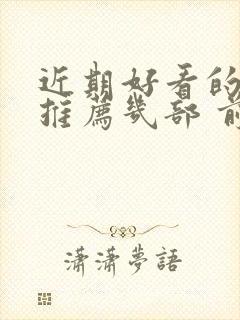 近期好看的
推薦幾部 前
瀟瀟夢語